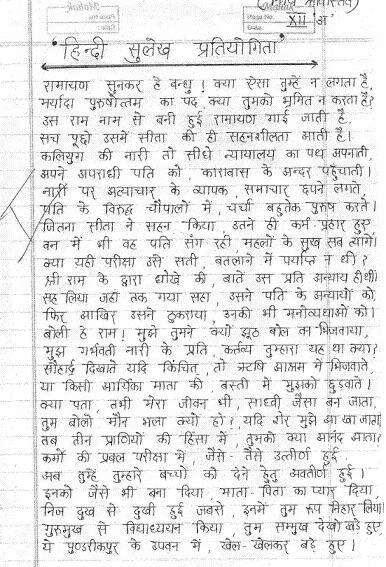 XII 'अ'
"हिन्दी सुलेख प्रतियोगिता"
रामायण सुनकर हे बन्धु ! क्या ऐसा तुम्हें न लगता है,
मर्यादा पुरुषोत्तम का पद, क्या तुमको भ्रमित न करता है?
उस राम नाम से बनी हुई रामायण गाई जाती है,
सच पूछो उसमें सीता की ही सहनशीलता आती है।
कलियुग की नारी तो सीधे न्यायालय का पथ अपनाती,
अपने अपराधी पति को, कारावास के अन्दर पहुँचाती।
नारी पर अत्याचार के व्यापक, समाचार छपने लगते,
पति के विरुद्ध चौपालों में, चर्चा बहुतेक पुरुष करते।
जितना सीता ने सहन किया, उतने ही कर्म प्रहार हुए
वन में भी वह पति संग रही, महलों के सुख सब त्यागे।
क्या यही परीक्षा उसे सती, बतलाने में पर्याप्त न थी ?
श्री राम के द्वारा धोखे की, बातें उस प्रति अन्याय ही थी।
सह लिया जहाँ तक गया सहा, उसने पति के अन्यायों को,
फिर आखिर उसने ठुकराया, उनकी भी मनोव्यथाओं को।
बोली हे राम! मुझे तुमने क्यों झूठ बोल वन भिजवाया,
मुझ गर्भवती नारी के प्रति, कर्तव्य तुम्हारा यह था क्या?
सौहार्द दिखाते यदि किंचित्, तो ऋषि आश्रम में भिजवाते,
या किसी आर्यिका माता की, बस्ती में मुझको छुड़वाते।
क्या पता, तभी मेरा जीवन भी, साध्वी जैसा बन जाता,
तुम बोलो मौन भला क्यों हो? यदि शेर मुझे आ खा जाता
तब तीन प्राणियों की हिंसा में, तुमको क्या आनंद आता?
कर्मों की प्रबल परीक्षा में, जैसे-तैसे उत्तीर्ण हुई,
अब तुम्हें तुम्हारे बच्चों को देने हेतु अवतीर्ण हुई।
इनको जैसे भी बना दिया, माता-पिता का प्यार दिया,
निज दुख से दुखी हुई जबसे, इनमें तुम रूप निहार लिया।
गुरुमुख से विद्याध्ययन किया, तुम सम्मुख देखो खड़े हुए,
ये पुण्डरीकपुर के उपवन में, खेल-खेलकर बड़े हुए।